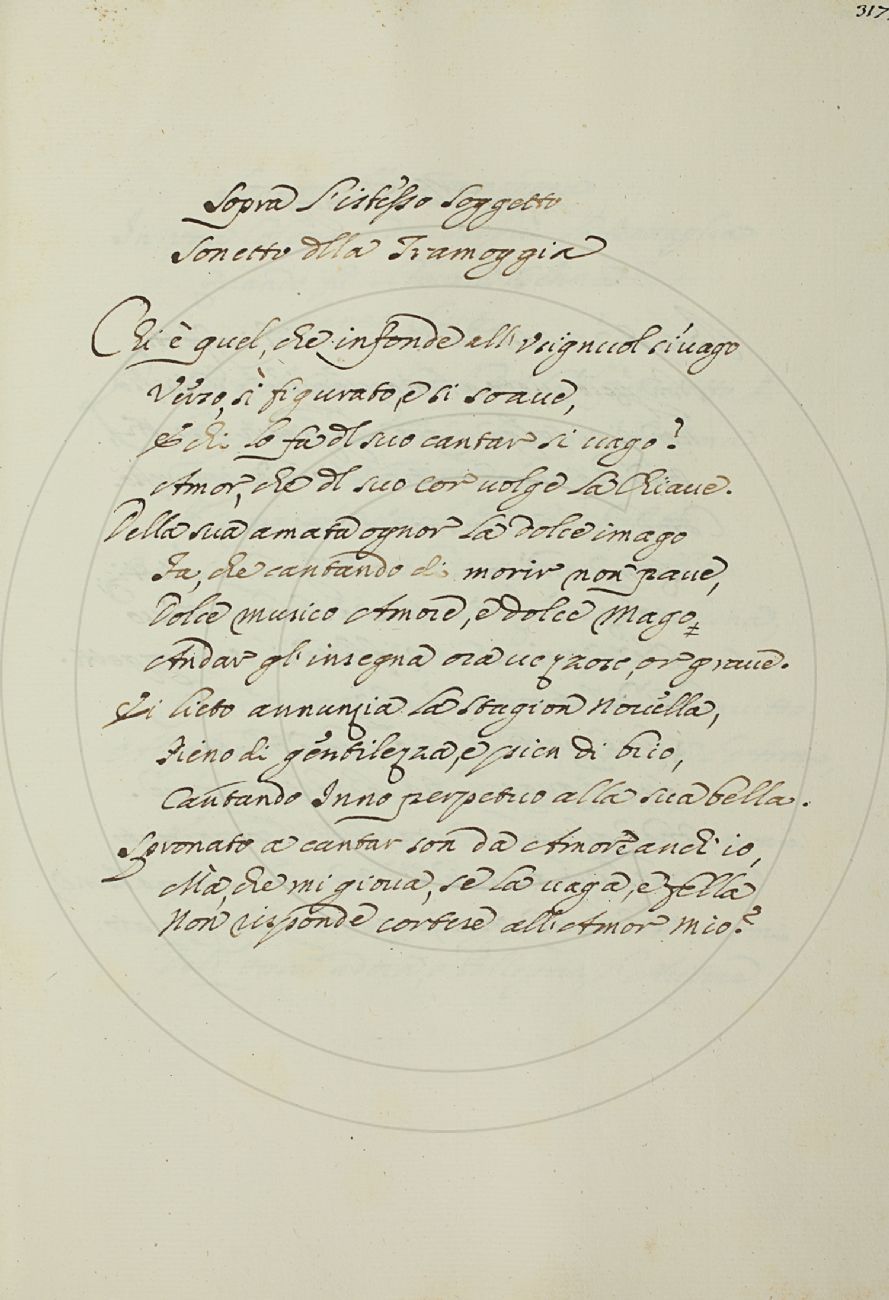 317.
Sopra l'istesso soggetto
Sonetto dlla Tramoggia
Chi è quel, che infonde all' Usignuol sì vago
Verso, sì figurato, e si soave,
e chi lo fà dl suo cantar si vago?
Amor, che dl suo cor volge la Chiave.
Della sua amata ognor la dolce imago
Fa, che cantando di morir non pave,
Dolce musico Amore, e dolce Mago
Andar gl' insegna ora vezzose, or grave.
Ei lieto annunzia la stagion Novella,
Pieno di gentilezza, e pien di brio,
Cantando Inno perpetuo alla sua bella.
Spronato a cantar son da Amore anch' io,
Mà, che mi giova, se la vaga, e fella
Non risponde cortese all' Amor mio?